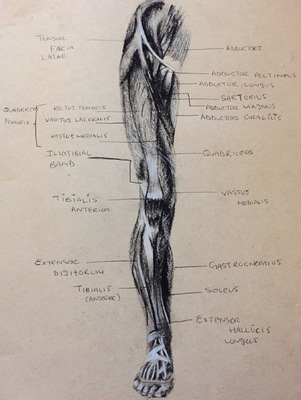 TENSOR
FACIA
LATAE
QUADRICEP
FEMORIS
RECTUS FEMORIS
VASTUS LATERALIS
VASTUS MEDIALIS
ILIOTIBIAL
BAND
TIBIALIS
ANTERIOR
EXTENSOR
DIGITORUM
TIBIALIS
(ANTERIOR)
ADDUCTORS
ADDUCTOR PECTINEUS
ADDUCTOR LONGUS
SARTORIUS
ADDUCTOR MAGNUS
ADDUCTOR GRACILIS
QUADRICEPS
VASTUS
MEDIALIS
GASTROCNEMIUS
SOLEUS
EXTENSOR
HALLUCIS
LONGUS